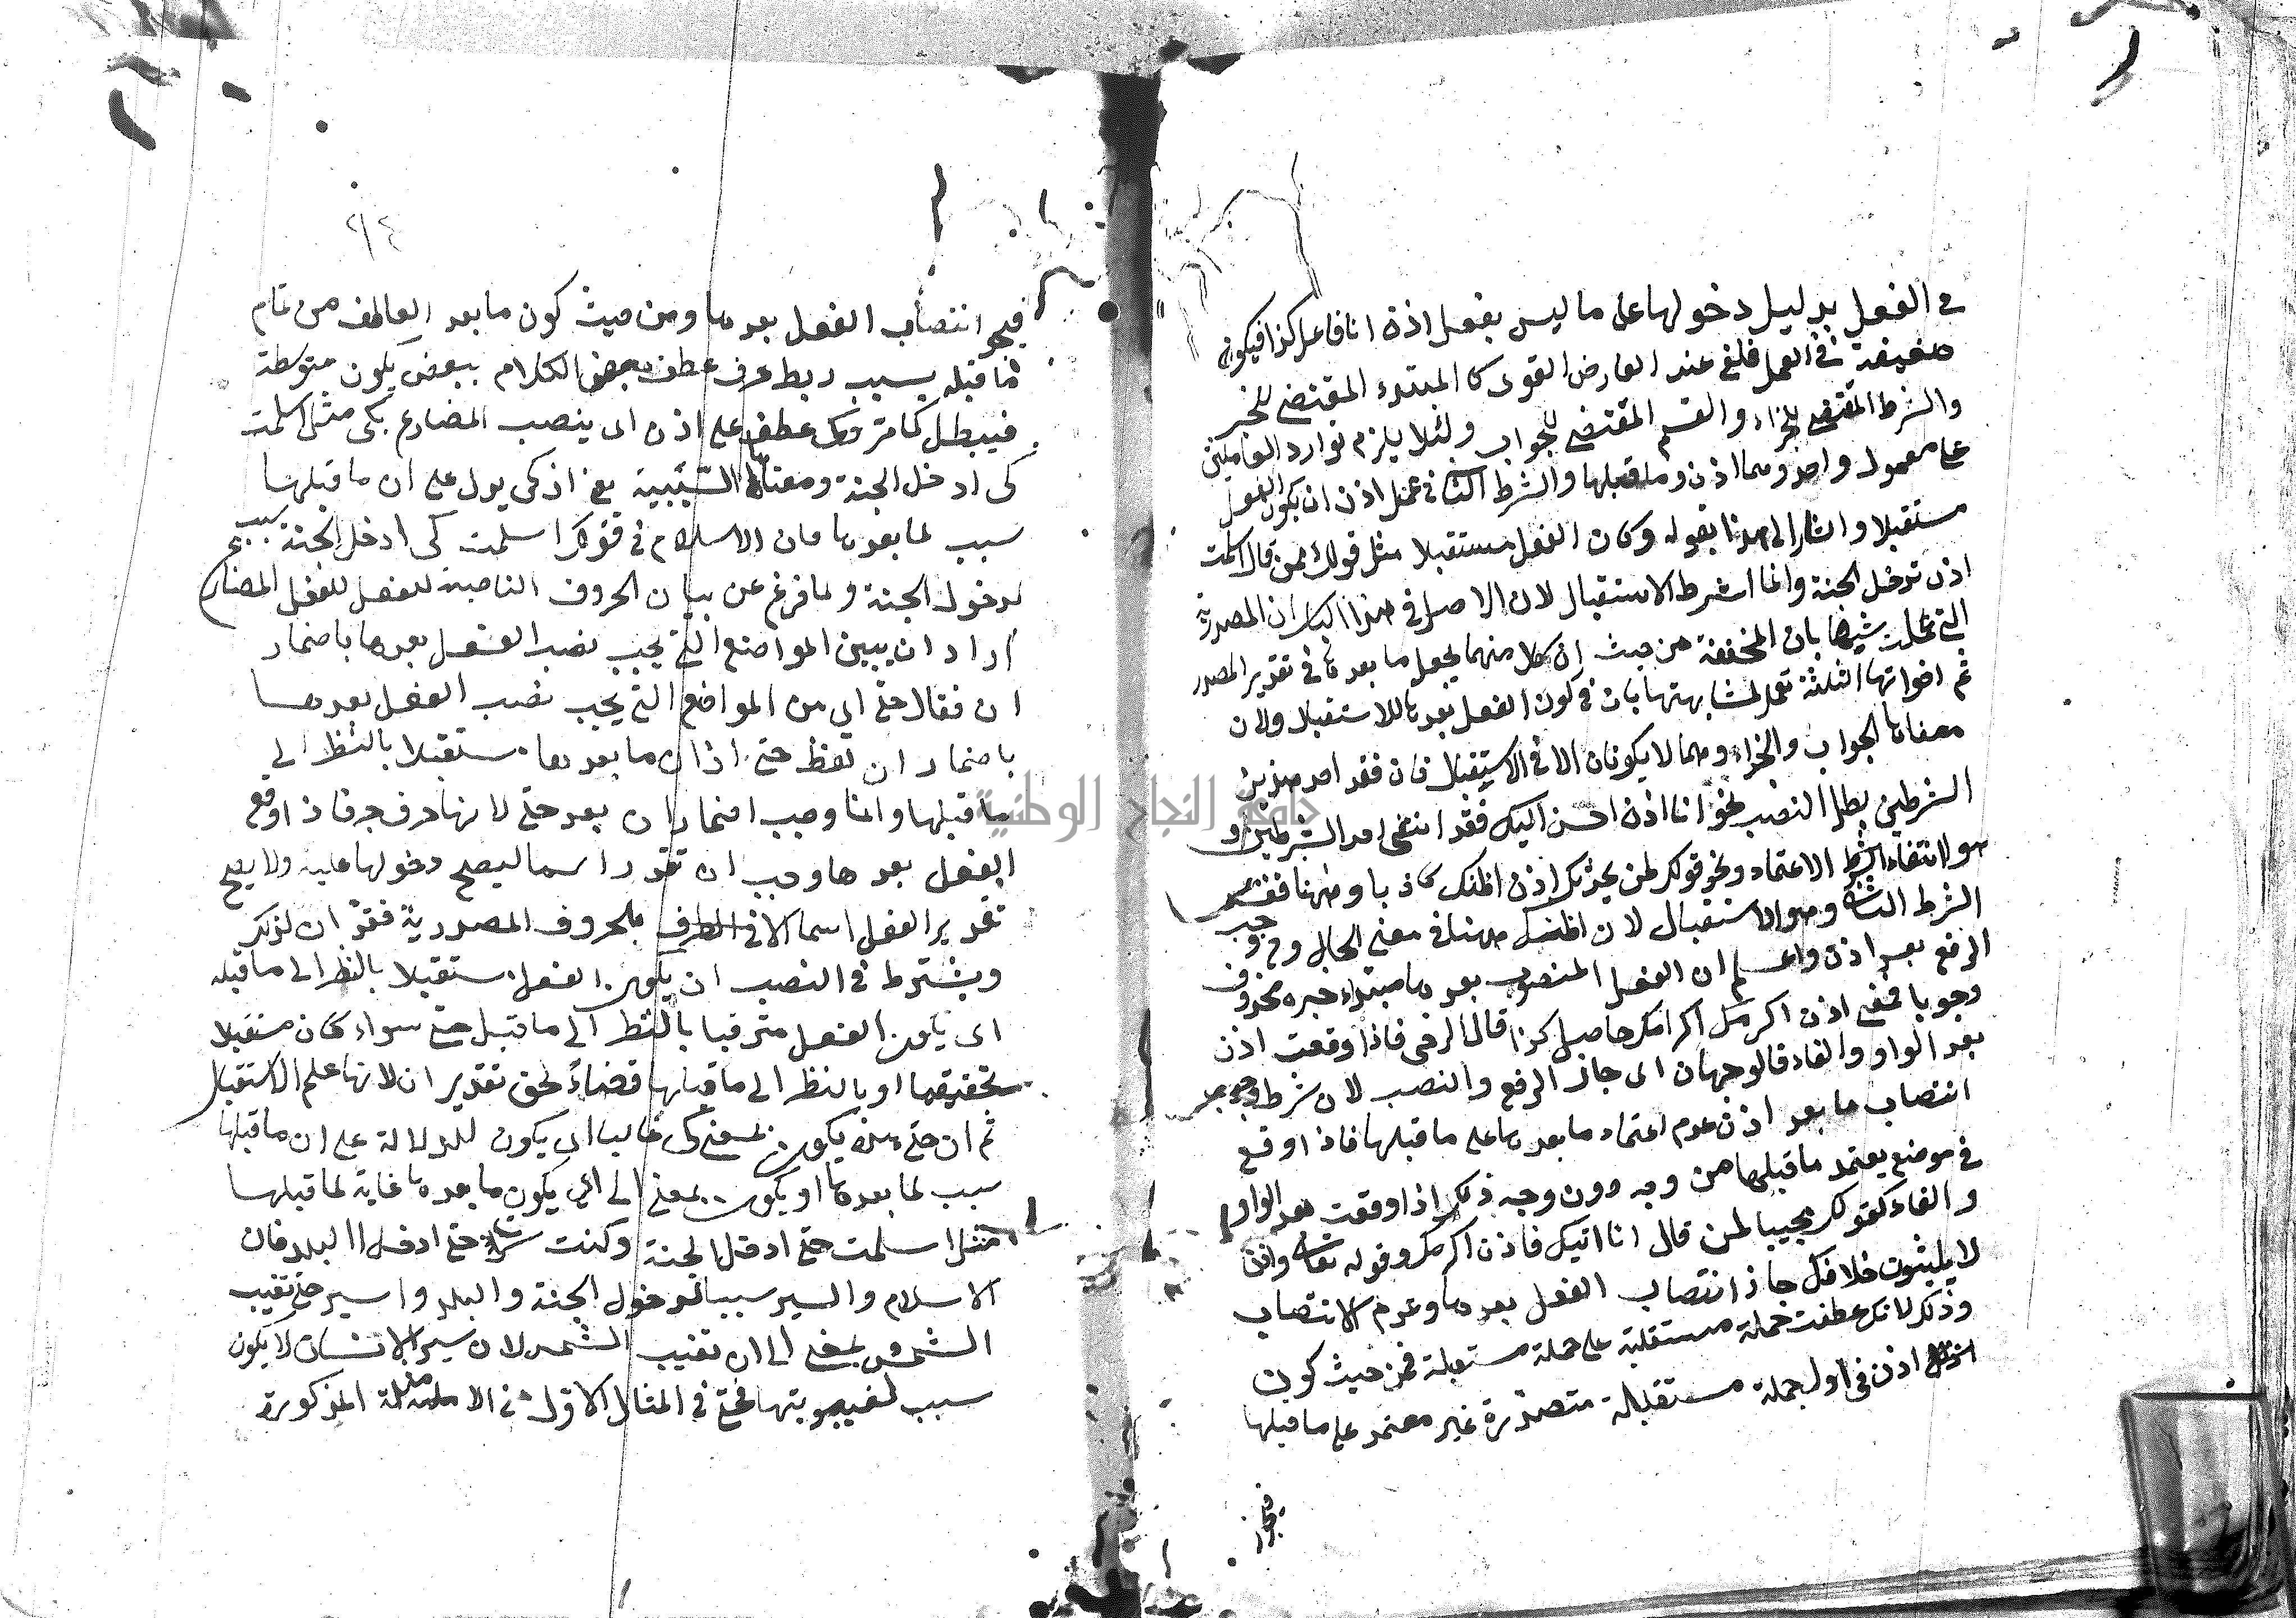 في الفعل بدليل دخولها على ما ليس بفعل اذن انا فاعل كذا فيكون
ضعيفة في العمل فلغى عند العارض القوى كا المبتدء المقتضى للخبر
والشرط المقتضى للجزاء والقسم المقتضى للجواب ولئلا يلزم توارد العاملين
على معمول واحد وهما اذن وما قبلها والشرط الثانى فى عمل اذن ان يكون الفعل
مستقبلا واشار الى هذا بقوله وكان الفعل مستقبلا مثل قولك لمن قال اسلمت
اذن تدخل الجنة وانما اشترط الاستقبال لان الاصل فى هذا الباب ان المصدرية
التى عملت شبهها بان المخففة من حيث ان كل منهما يجعل ما بعدها فى تقدير المصدر
ثم اخواتها الثلثة تعمل لمشابهتها بان فى كون الفعل بعدها للاستقبال ولان
معناها الجواب والجزاء وهما لا يكونان الا فى الاستقبال فان فقد احد هذين
الشرطين بطل النصب نحو انا اذن احسن اليك فقد انتفى احد الشرطين و
هو انتفاء الشرط الاعتماد ونحو قولك لمن يحدثك اذن اظنك كاذبا وههنا فقد
الشرط الثانى وهو الاستقبال لان اظنك ههنا فى معنى الحال و وجب
الرفع بعد اذن واعلم ان الفعل المنصوب بعدها مبتداء خبره محذوف
وجوبا فمعنى اذن اكرمك اكرامك حاصل كذا قال الرضى فاذا وقعت اذن
بعد الواو والفاء فالوجهان اى جاز الرفع والنصب لان شرط وجوب
انتصاب ما بعد اذن عدم اعتماد ما بعدها على ما قبلها فاذا وقع
فى موضع يعتمد ما قبلها من وجه دون وجه ذلك اذا وقعت بعد الواو
والفاء كقولك مجيبا لمن قال انا اتيك فاذن اكرمك وقوله تعالى واذن
لا يلبثون خلافك جاز انتصاب الفعل بعدها وعدم الانتصاب
وذلك لانك عطفت جملة مستقلة على جملة مستقلة فمن حيث كون
اذن فى اول جملة مستقلة متصدرة غير معتمد على ما قبلها
فيجوز
٢١٤
فيجوز انتصاب الفعل بعدها ومن حيث كون ما بعد العاطف من تمام
ما قبله بسبب ربط حرف عطف بعض الكلام ببعض يكون متوسطة
فيبطل كما مر وكى عطف على اذن اى ينصب المضارع بكى مثل اسلمت
كى ادخل الجنة ومعناها السببية يعنى اذ كى يدل على ان ما قبلها
سبب لما بعدها فان الاسلام فى قولك اسلمت كى ادخل الجنة سبب
لدخول الجنة ولما فرغ عن بيان الحروف الناصبة للفعل للفعل المضارع
اراد ان يبين المواضع التى يجب نصب الفعل بعدها باضمار
ان فقال حتى اى من المواضع التى يجب نصب الفعل بعدها
باضمار ان لفظ حتى اذا كان ما بعدها مستقبلا بالنظر الى
ما قبلها وانما وجب اضمار ان بعد حتى لانها حرف جر فاذا وقع
الفعل بعدها وجب ان تقدر اسما ليصح دخولها عليه ولا يصح
تقدير الفعل اسما الا فى الطرف بالحروف المصدرية فقدر ان لذلك
ويشترط فى النصب ان يكون الفعل مستقبلا بالنظر الى ما قبله
اى يكون الفعل مترقبا بالنظر الى ما قبل حتى سواء كان مستقبلا
تحقيقها او بالنظر الى ما قبلها قضاءً لحق تقدير ان لانها علم الاستقبال
ثم ان حتى هذه يكون بمعنى كى غالبا اى يكون للدلالة على ان ما قبلها
سبب لما بعدها او يكون بمعنى الى اى يكون ما بعدها غاية لما قبلها
مثل اسلمت حتى ادخل الجنة وكنت سرت حتى ادخل البلد فان
الاسلام والسير سببا لدخول الجنة والبلد واسير حتى تغيب
الشمس بمعنى الى ان تغيب الشمس لان سير الانسان لا يكون
سبب لغيبوبتها فحتى فى المثال الاول فى الامثلة المذكورة
جامعة النجاح الوطنية